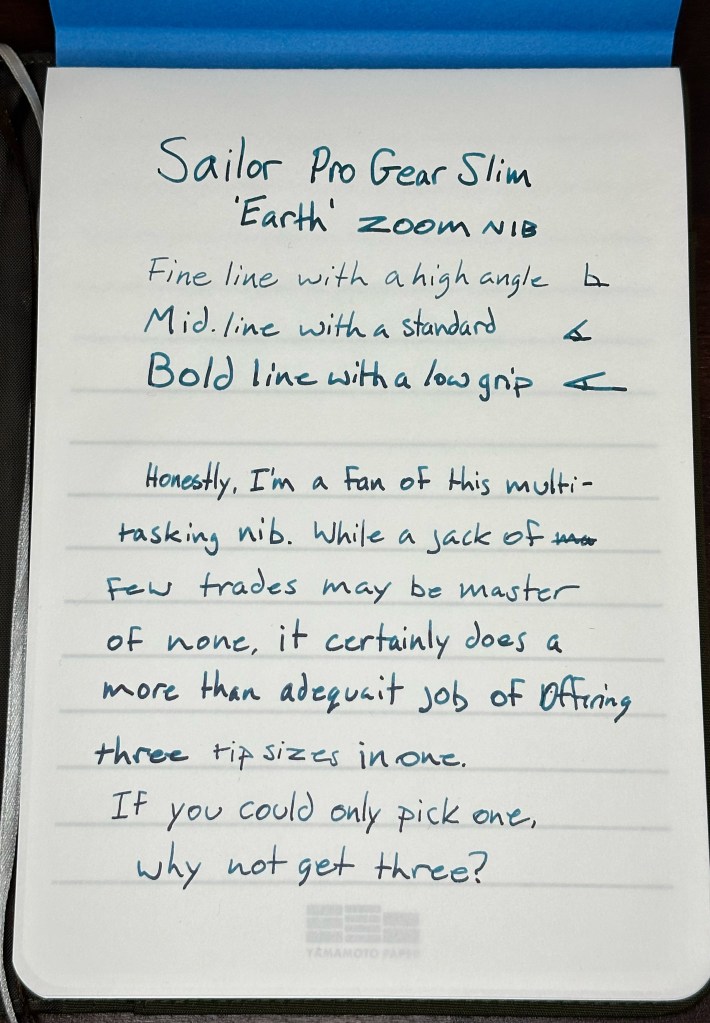 Sailor Pro Gear Slim
'Earth' ZOOM NIB
Fine line with a high angle
Mid. line with a standard
Bold line with a low grip
Honestly, I'm a fan of this multi-
tasking nib. While a jack of
few trades may be master
of none, it certainly does a
more than adequait job of offering
three tip sizes in one.
If you could only pick one,
why not get three?
YAMAMOTO PAPER